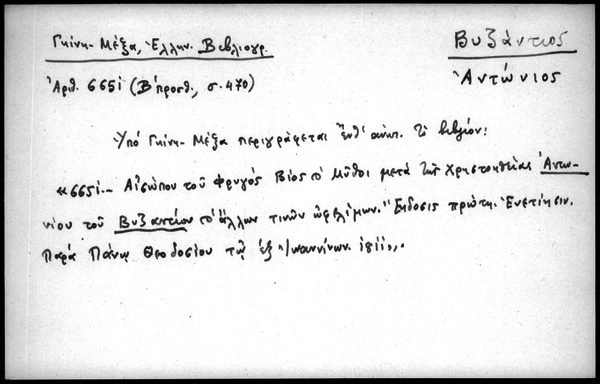 Γκίνη - Μέξα, Ἑλλην. Βιβλιογρ.
Βυζάντιος
Ἀντώνιος
Ἀριθ. 665i (Β' προσθ., σ. 470)
Ὑπό Γκίνη - Μέξα περιγράφεται τὸ βιβλίον:
«665i.- Αἰσώπου τοῦ Φρυγός Βίος Μῦθοι μετά τῆς Χρηστοηθείας Ἀντω-
νίου τοῦ Βυζαντίου ἄλλων τινῶν ὠφελίμων. Ἔκδοσις πρώτη. Ἐνετίησιν.
Παρά Πάνῳ Θεοδοσίου τῷ ἐξ Ἰωαννίνων